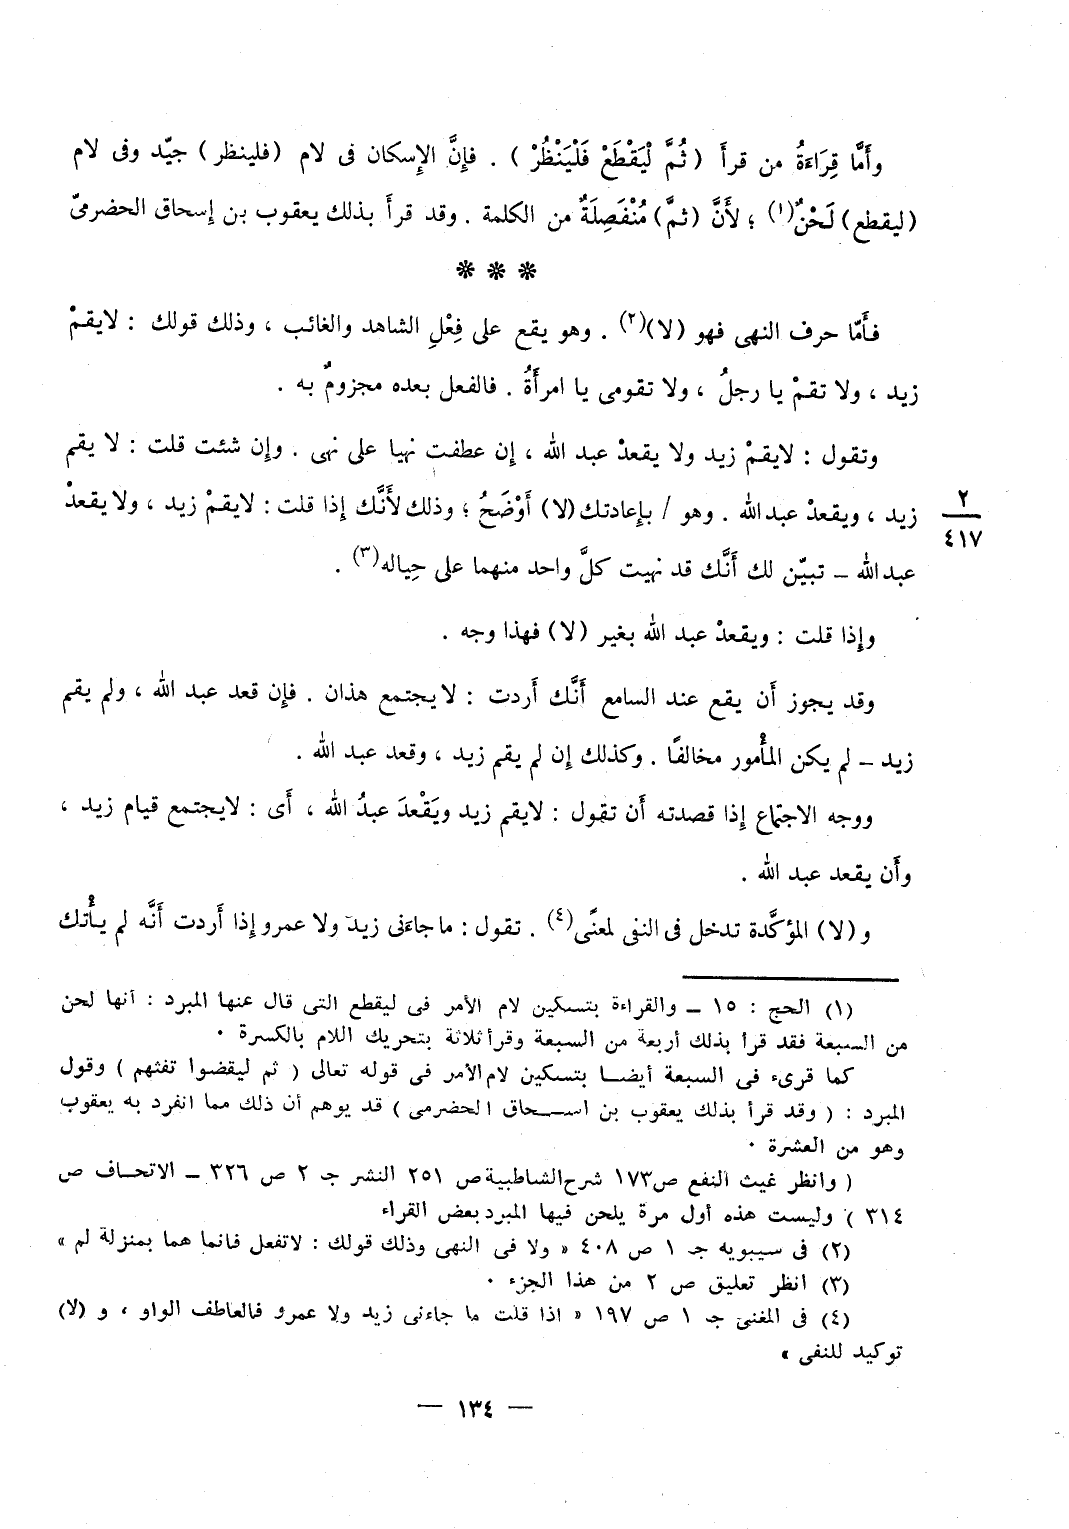 وأَمَّا قِرَاءَةُ من قرأَ (ثُمَّ لْيَقْطَعْ فَلْيَنْظُرْ) . فإِنَّ الإِسكان فى لام (فلينظر) جيّد وفى لام
(ليقطع) لَحْنٌ(١) ؛ لأَنَّ (ثمَّ) مُنْفَصِلَةٌ من الكلمة . وقد قرأَ بذلك يعقوب بن إِسحاق الحضرمىّ
* * *
فأَمّا حرف النهى فهو (لا)(٢) . وهو يقع على فِعْلِ الشاهد والغائب ، وذلك قولك : لايقمْ
زيد ، ولا تقمْ يا رجلُ ، ولا تقومى يا امرأَةُ . فالفعل بعده مجزومٌ به .
وتقول : لايقمْ زيد ولا يقعدْ عبد الله ، إِن عطفت نهيا على نهى . وإِن شئت قلت : لا يقم
زيد ، ويقعدْ عبدالله . وهو / بإِعادتك (لا) أَوْضَحُ ؛ وذلك لأَنَّك إِذا قلت : لايقمْ زيد ، ولا يقعدْ
٢
٤١٧
عبدالله ــ تبيّن لك أَنَّك قد نهيت كلَّ واحد منهما على حِياله(٣) .
وإِذا قلت : ويقعدْ عبد الله بغير (لا) فهذا وجه .
وقد يجوز أَن يقع عند السامع أَنَّك أَردت : لا يجتمع هذان . فإِن قعد عبد الله ، ولم يقم
زيد ــ لم يكن المأْمور مخالفًا . وكذلك إِن لم يقم زيد ، وقعد عبد الله .
ووجه الاجتماع إِذا قصدته أَن تقول : لايقم زيد ويَقْعدَ عبدُ الله ، أَى : لايجتمع قيام زيد ،
وأَن يقعد عبد الله .
و (لا) المؤكَّدة تدخل فى النفى لمعنًى(٤) . تقول : ماجاءَنى زيد ولا عمرو إِذا أَردت أَنَّه لم يأْتك
(١) الحج : ١٥ ــ والقراءة بتسكين لام الأمر فى ليقطع التى قال عنها المبرد : أنها لحن
من السبعة فقد قرأ بذلك أربعة من السبعة وقرأ ثلاثة بتحريك اللام بالكسرة ٠
كما قرىء فى السبعة أيضا بتسكين لام الأمر فى قوله تعالى ( ثم ليقضوا تفثهم ) وقول
المبرد : ( وقد قرأ بذلك يعقوب بن اسحاق الحضرمى ) قد يوهم أن ذلك مما انفرد به يعقوب
وهو من العشرة ٠
( وانظر غيث النفع ص١٧٣ شرح الشاطبية ص ٢٥١ النشر جـ ٢ ص ٣٢٦ ــ الاتحاف ص
٣١٤ ) وليست هذه أول مرة يلحن فيها المبرد بعض القراء
(٢) فى سيبويه جـ ١ ص ٤٠٨ « ولا فى النهى وذلك قولك : لاتفعل فانما هما بمنزلة لم »
(٣) انظر تعليق ص ٢ من هذا الجزء ٠
(٤) فى المغنى جـ ١ ص ١٩٧ « اذا قلت ما جاءنى زيد ولا عمرو فالعاطف الواو ، و (لا)
توكيد للنفى »
— ١٣٤ —